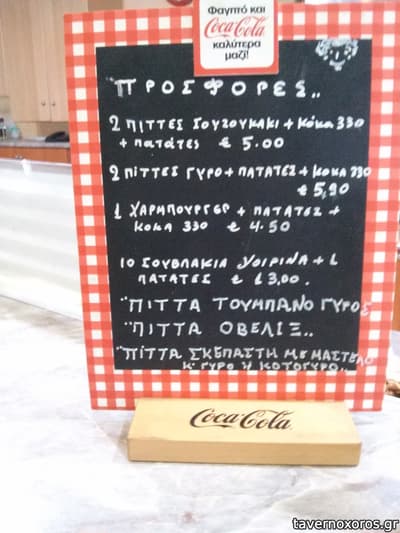 Φαγητό και
Coca-Cola
καλύτερα
μαζί!
"ΠΡΟΣΦΟΡΕΣ..
2 ΠΙΤΤΕΣ ΣΟΥΖΟΥΚΑΚΙ + ΚόΚΑ 330
+ Πατάτες € 5.00
2 ΠΙΤΤΕΣ ΓΥΡΟ + ΠΑΤΑΤΕΣ + ΚΟΚΑ 330
€ 5,90
1 ΧΑΡΜΠΟΥΡΓΕΡ + ΠΑΤΑΤΕΣ +
ΚΟΚΑ 330 € 4.50
10 ΣΟΥΒΛΑΚΙΑ ΧΟΙΡΙΝΑ + 1
ΠΑΤΑΤΕΣ € 13,00.
"ΠΙΤΤΑ ΤΟΥΜΠΑΝΟ ΓΥΡΟΣ
"ΠΙΤΤΑ ΟΒΕΛΙΞ..
"ΠΙΤΤΑ ΣΚΕΠΑΣΤΗ ΜΕ ΜΑΣΤΕΛΟ
Κ' ΓΥΡΟ Ή ΚΟΤΟΓΥΡΟ..
Coca-Cola
tavernoxoros.gr